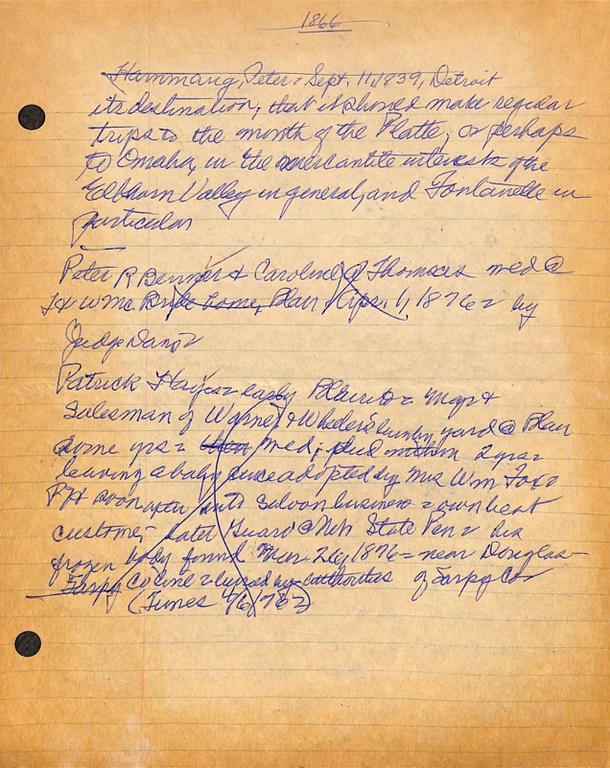 1866
Hammang, Peter = Sept. 11, 1839, Detroit
its destination, that it should make regular
trips to the mouth of the Platte, or perhaps
to Omaha, in the mercantile interests of the
Elkhorn Valley in general, and Fontanelle in
particular
Peter R Benner & Caroline Thomsens med @
Wm Bride home, Blair Apr. 1, 1876 = by
Judge
Patrick Hayes = early Blairite = Mgr &
Salesman of Warner & Wheeler's lumber yard @ Blair
some yrs = then med; died within 2 yrs =
leaving a baby since adopted by Mrs Wm Fox =
PH soon after into saloon business = own best
customer = later Guard @ Neb State Pen = his
frozen body found Mar. 26, 1876 = near Douglas-
Sarpy Co line = buried by authorities of Sarpy Co
(Times 4/6/76)